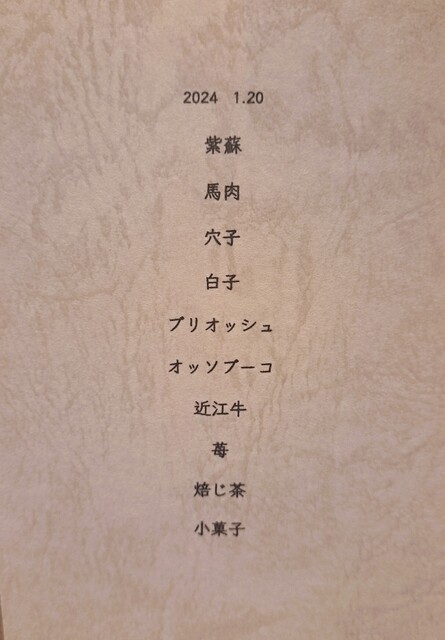 2024 1.20
紫蘇
馬肉
穴子
白子
ブリオッシュ
オッソブーコ
近江牛
苺
焙じ茶
小菓子